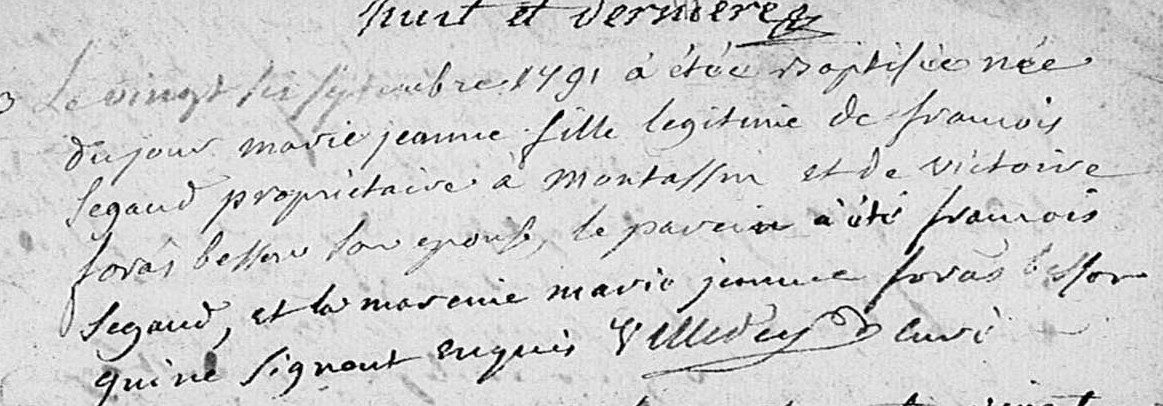 huit et derniere
Le vingt six septembre 1791 à étée Baptisée née
du jour marie jeanne fille legitime de francois
Segaud propriétaire à montassin et de victoire
foras besson son epouse, le parein à été francois
Segaud, et la mareine marie jeanne foras besson
qui ne signent enquis Curé